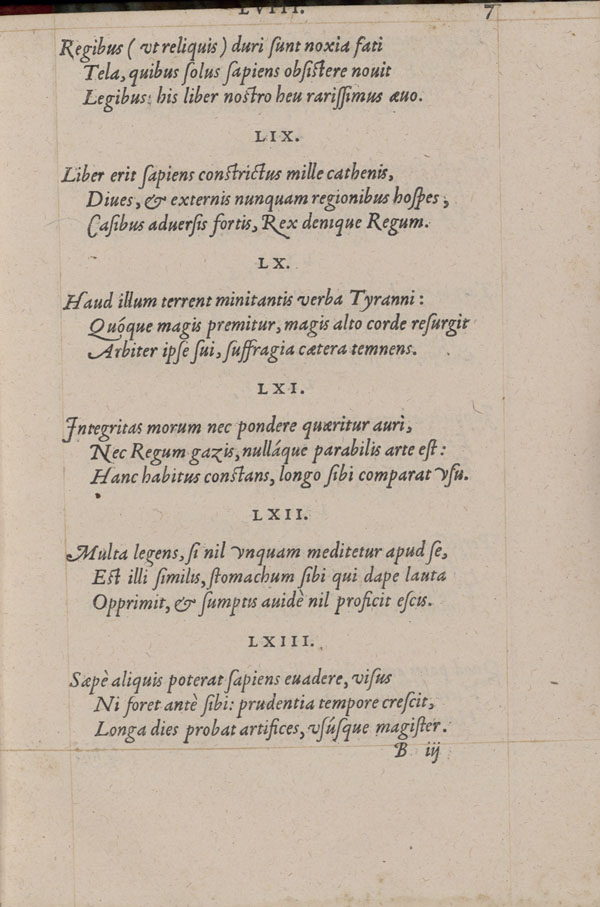 LVIII. 7
Regibus ( vt reliquis ) duri ſunt noxia fati
Tela, quibus ſolus ſapiens obſiſtere nouit
Legibus: his liber noſtro heu rariſſimus æuo.
LIX.
Liber erit ſapiens conſtrictus mille cathenis,
Diues, & externis nunquam regionibus hoſpes,
Caſibus aduerſis fortis, Rex denique Regum.
LX.
Haud illum terrent minitantis verba Tyranni:
Quóque magis premitur, magis alto corde reſurgit
Arbiter ipſe ſui, ſuffragia cætera temnens.
LXI.
Integritas morum nec pondere quæritur auri,
Nec Regum gazis, nulláque parabilis arte eſt:
Hanc habitus conſtans, longo ſibi comparat vſu.
LXII.
Multa legens, ſi nil vnquam meditetur apud ſe,
Eſt illi ſimilis, ſtomachum ſibi qui dape lauta
Opprimit, & ſumptis auidè nil proficit eſcis.
LXIII.
Sæpè aliquis poterat ſapiens euadere, viſus
Ni foret antè ſibi: prudentia tempore creſcit,
Longa dies probat artifices, vſúſque magiſter.
B iij